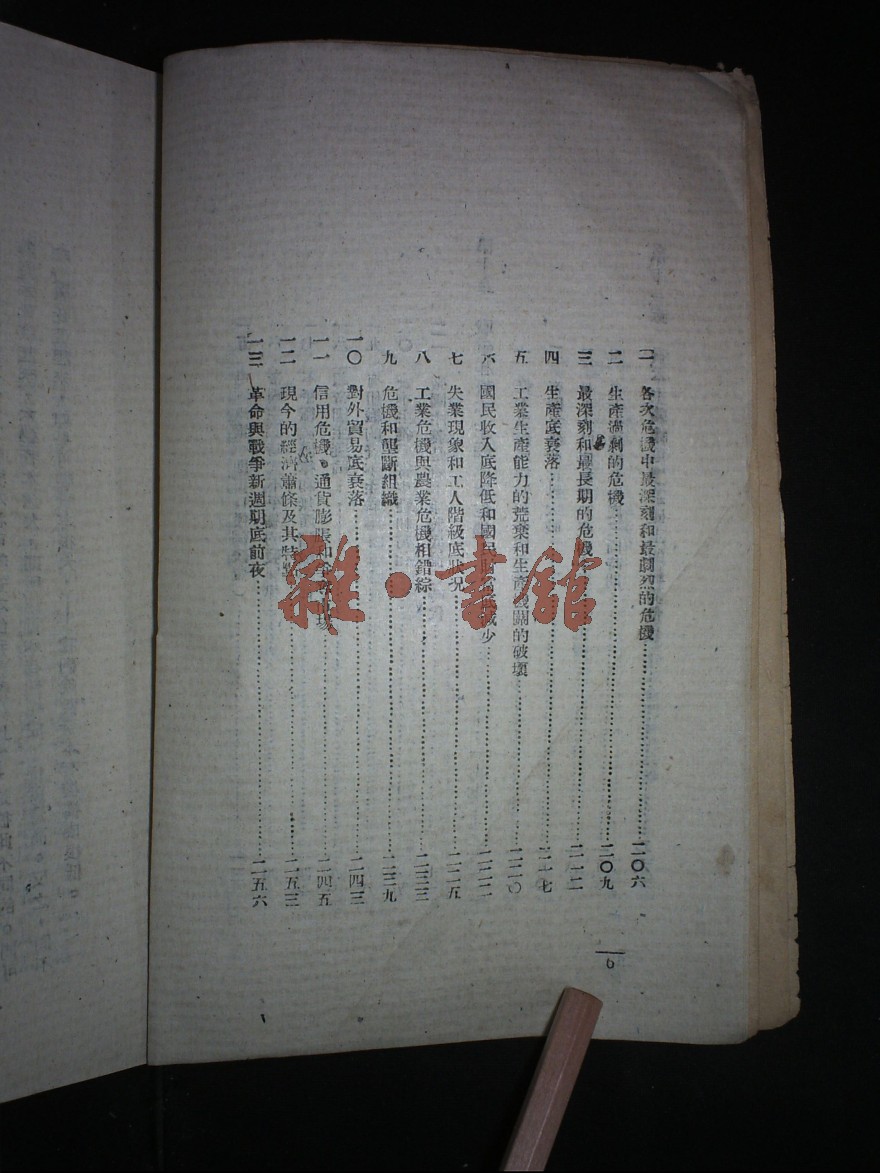 一 各次危機中最深刻和最劇烈的危機……二〇六
二 生產過剩的危機……二〇九
三 最深刻和最長期的危機……二一二
四 生產底衰落……二一七
五 工業生產能力的荒棄和生產機關的破壞……二二〇
六 國民收入底降低和國 減少……二二二
七 失業現象和工人階級底狀況……二二五
八 工業危機與農業危機相錯綜……二三三
九 危機和壟斷組織……二三九
一〇 對外貿易底衰落……二四三
一一 信用危機、通貨膨脹和 ……二四五
一二 現今的經濟蕭條及其特 ……二五三
一三 革命與戰爭新週期底前夜……二五六
6
雜·書館